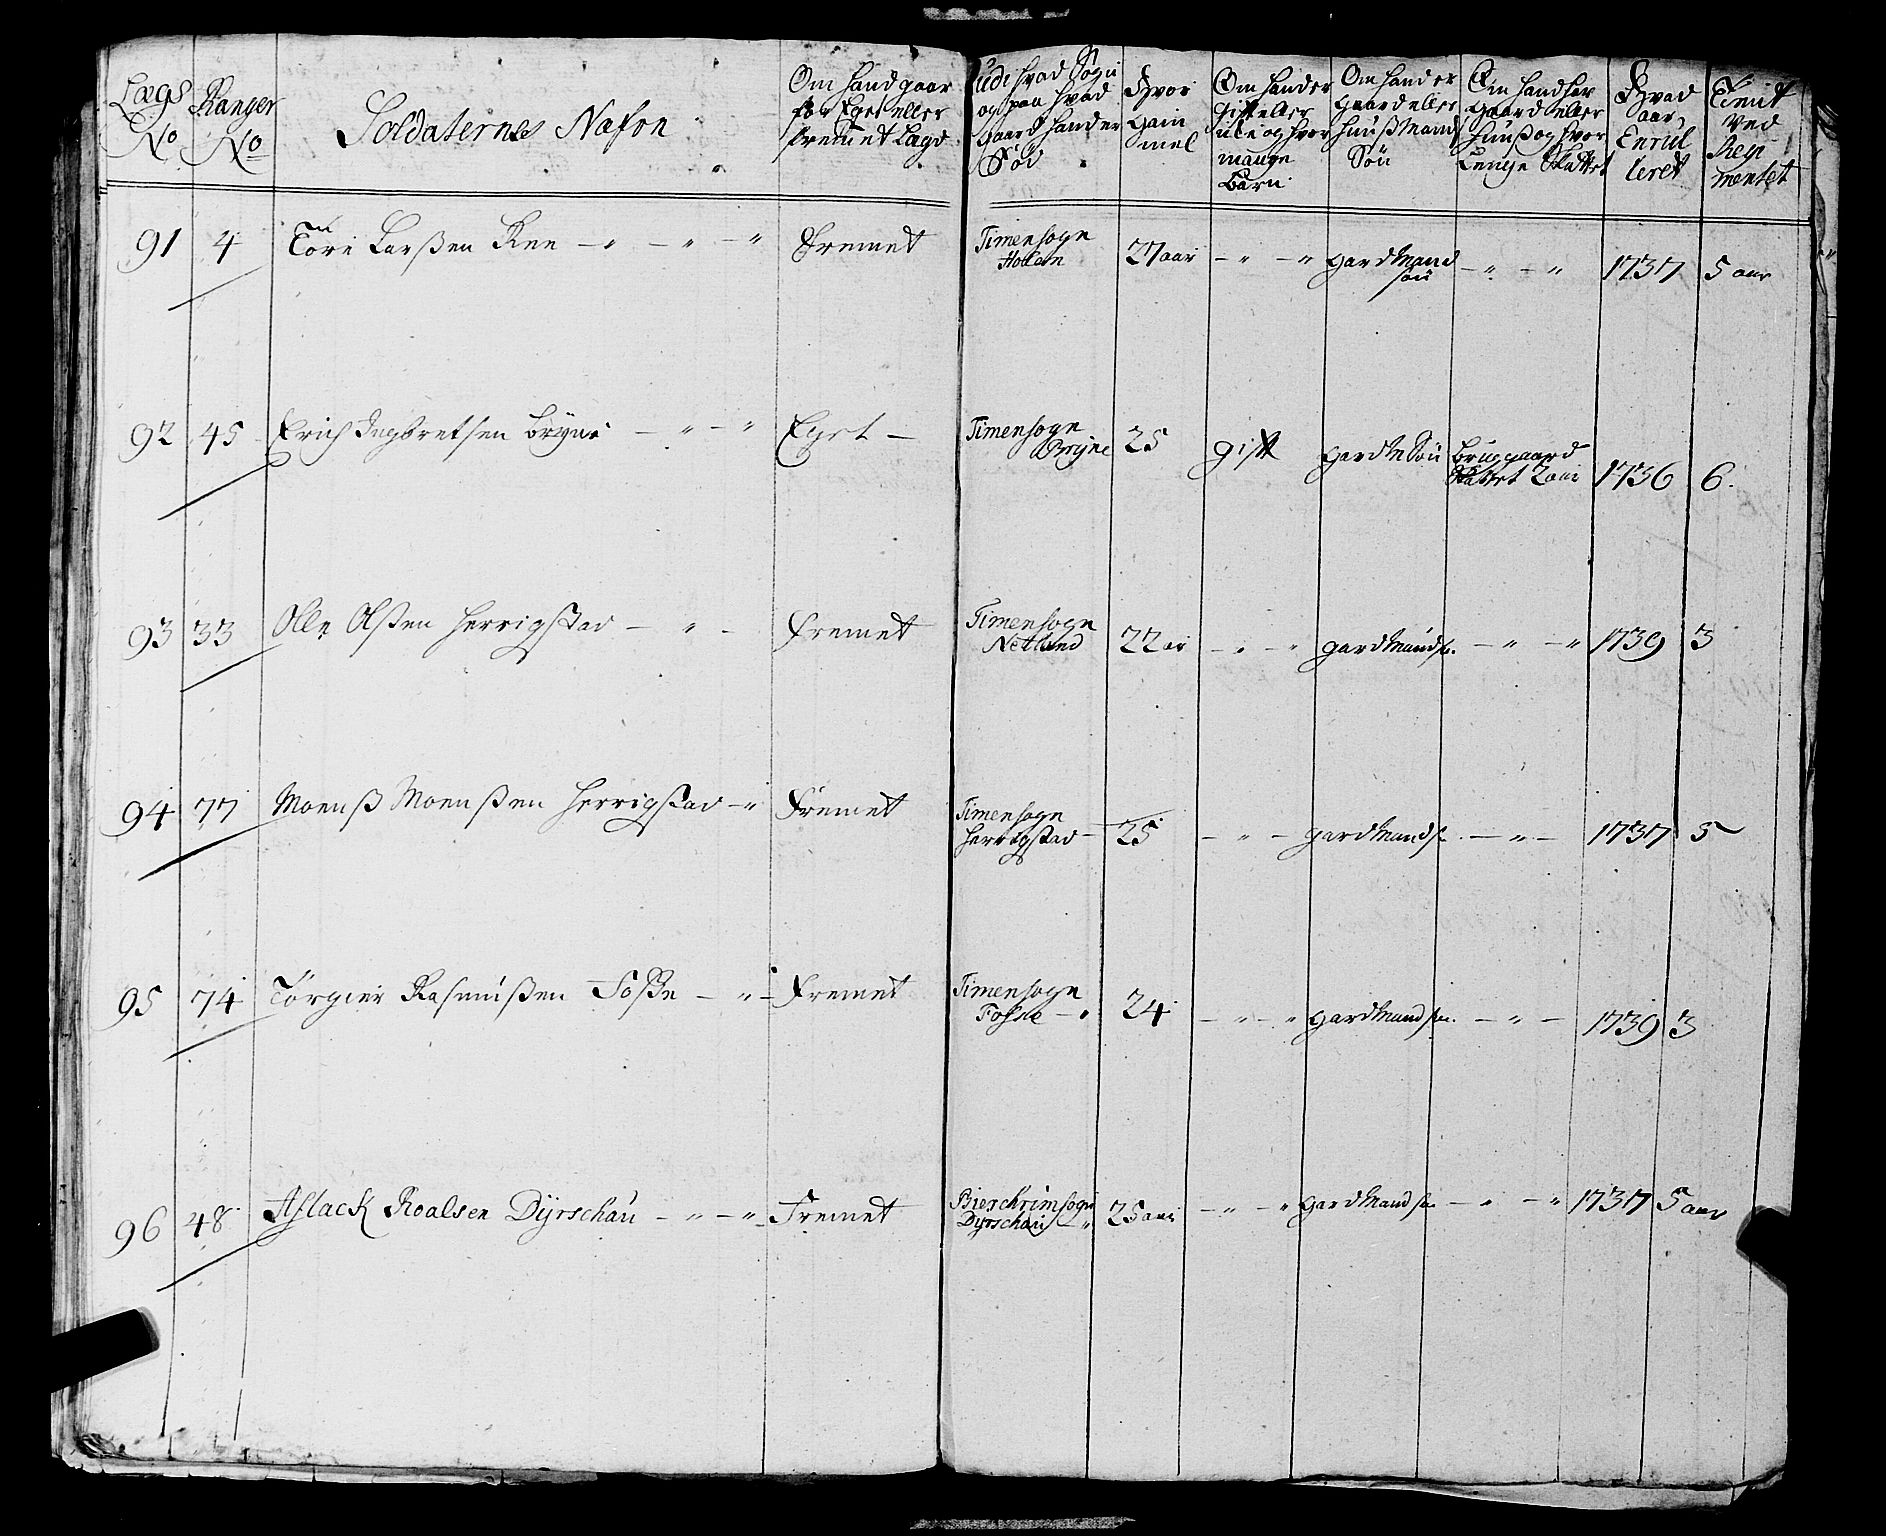 Lægs No
Ranger No
Soldaternes Nafon
Om hand gaar for Eget eller fremmet Lægd
udi hvad Sogn og paa hvad gaard hand er Fød
Hvor Gammel
Om hand er gift eller ike og hvor mange Barn
Om hand er gaard eller huußmands Søn
Om hand har gaard eller huuß og hvor Lenge Skattet
Hvad aar Enrulleret
Tient ved Regimentet
91 4 Tore Larßen Ree Fremet Timensogn Holan 27 aar gardmand søn 1737 5 aar
92 45 Erich Ingbretsen Bryne Eget Timensogn Bryne 25 gift gardm Søn Bruggaard Skattet 2 aar 1736 6
93 33 Olle Olßen Herrigstad Fremet Timensogn Netland 22 ar gardmand sø. 1739 3
94 77 Monß Monßen Herrigstad Fremet Timensogn Herrigstad 25 gardmands 1737 5
95 74 Torgier Rasmußen Foße Fremet Timensogn Fosse 24 gardmand søn. 1739 3
96 48 Aslack Roalsen Dÿrschau Fremet Bierchrimsogn Dyrschau 25 aar gardmand søn 1737 5 aar